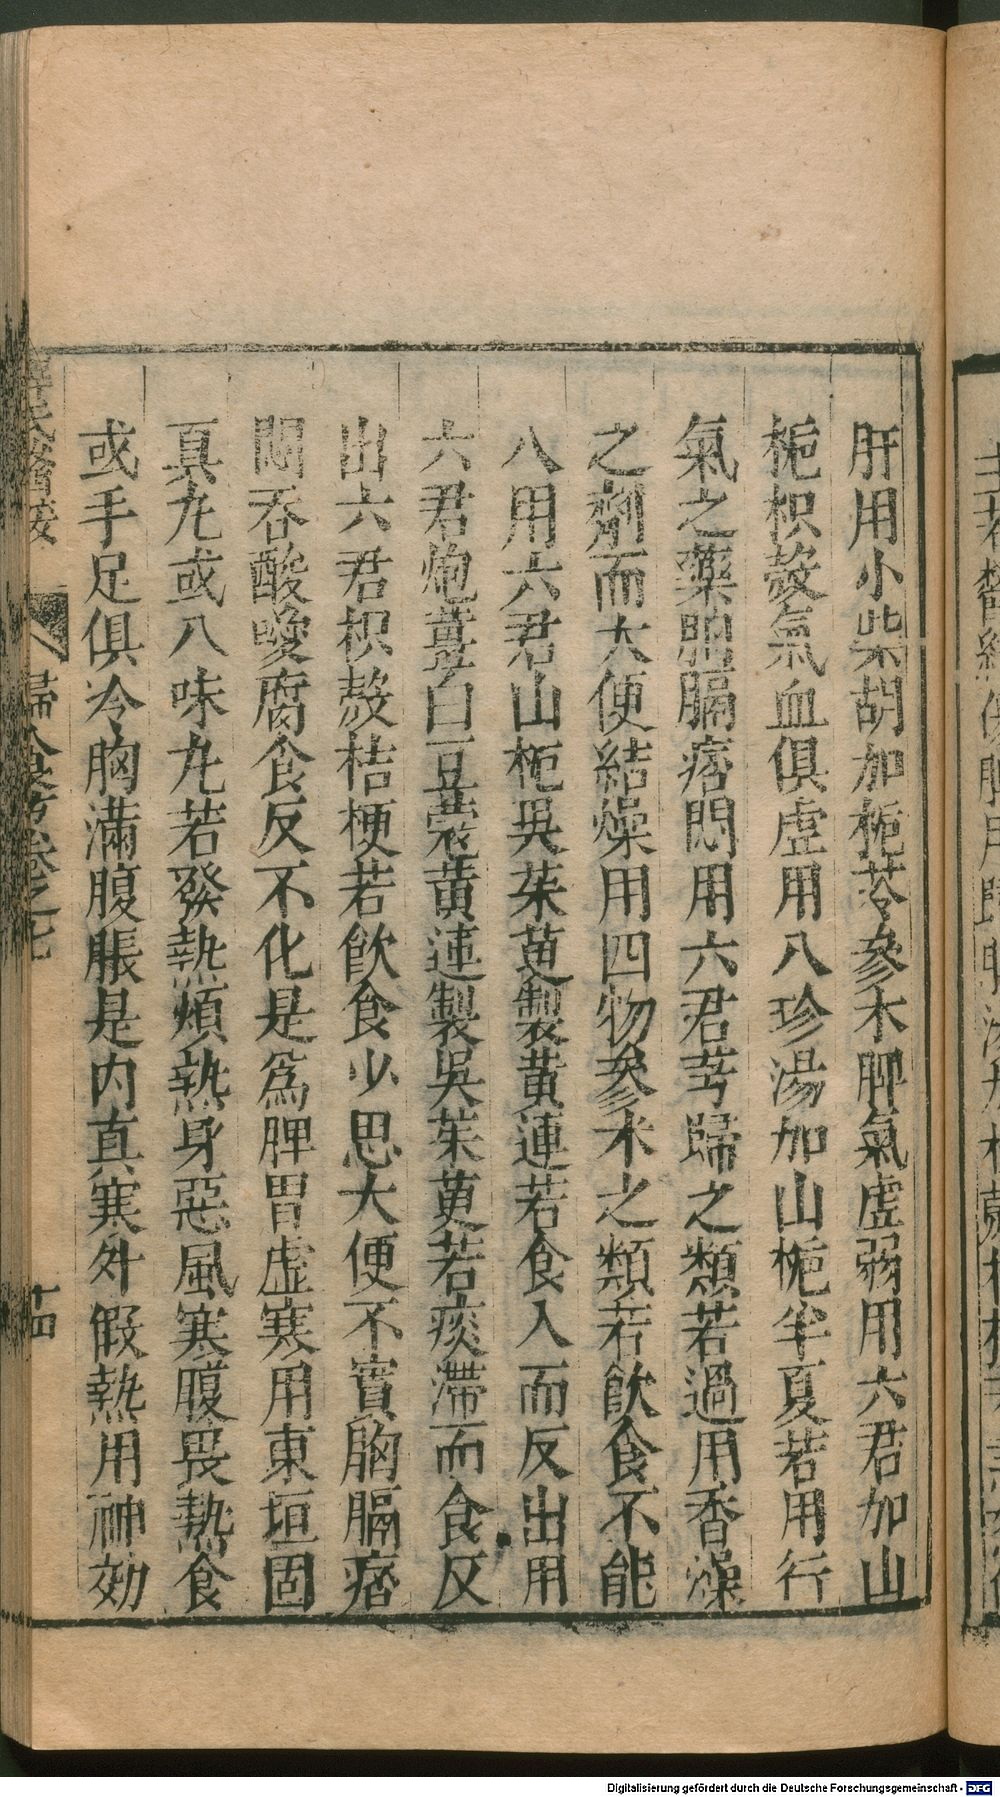 肝用小柴胡加梔苓參朮脾氣虛弱用六君加山
梔枳殼氣血俱虛用八珍湯加山梔半夏若用行
氣之藥胸膈痞悶用六君芎歸之類若過用香燥
之劑而大便結燥用四物參朮之類若飲食不能
入用六君山梔吳茱萸製黃連若食入而反出用
六君炮薑白豆蔻黃連製吳茱萸若痰滯而食反
出六君枳殼桔梗若飲食少思大便不實胸膈痞
悶吞酸噯腐食反不化是為脾胃虛寒用東垣固
真丸或八味丸若發熱煩熱身惡風寒腹畏熱食
或手足俱冷胸滿腹脹是內真寒外假熱用神効
十四
Digitalisierung gefördert durch die Deutsche Forschungsgemeinschaft - DFG